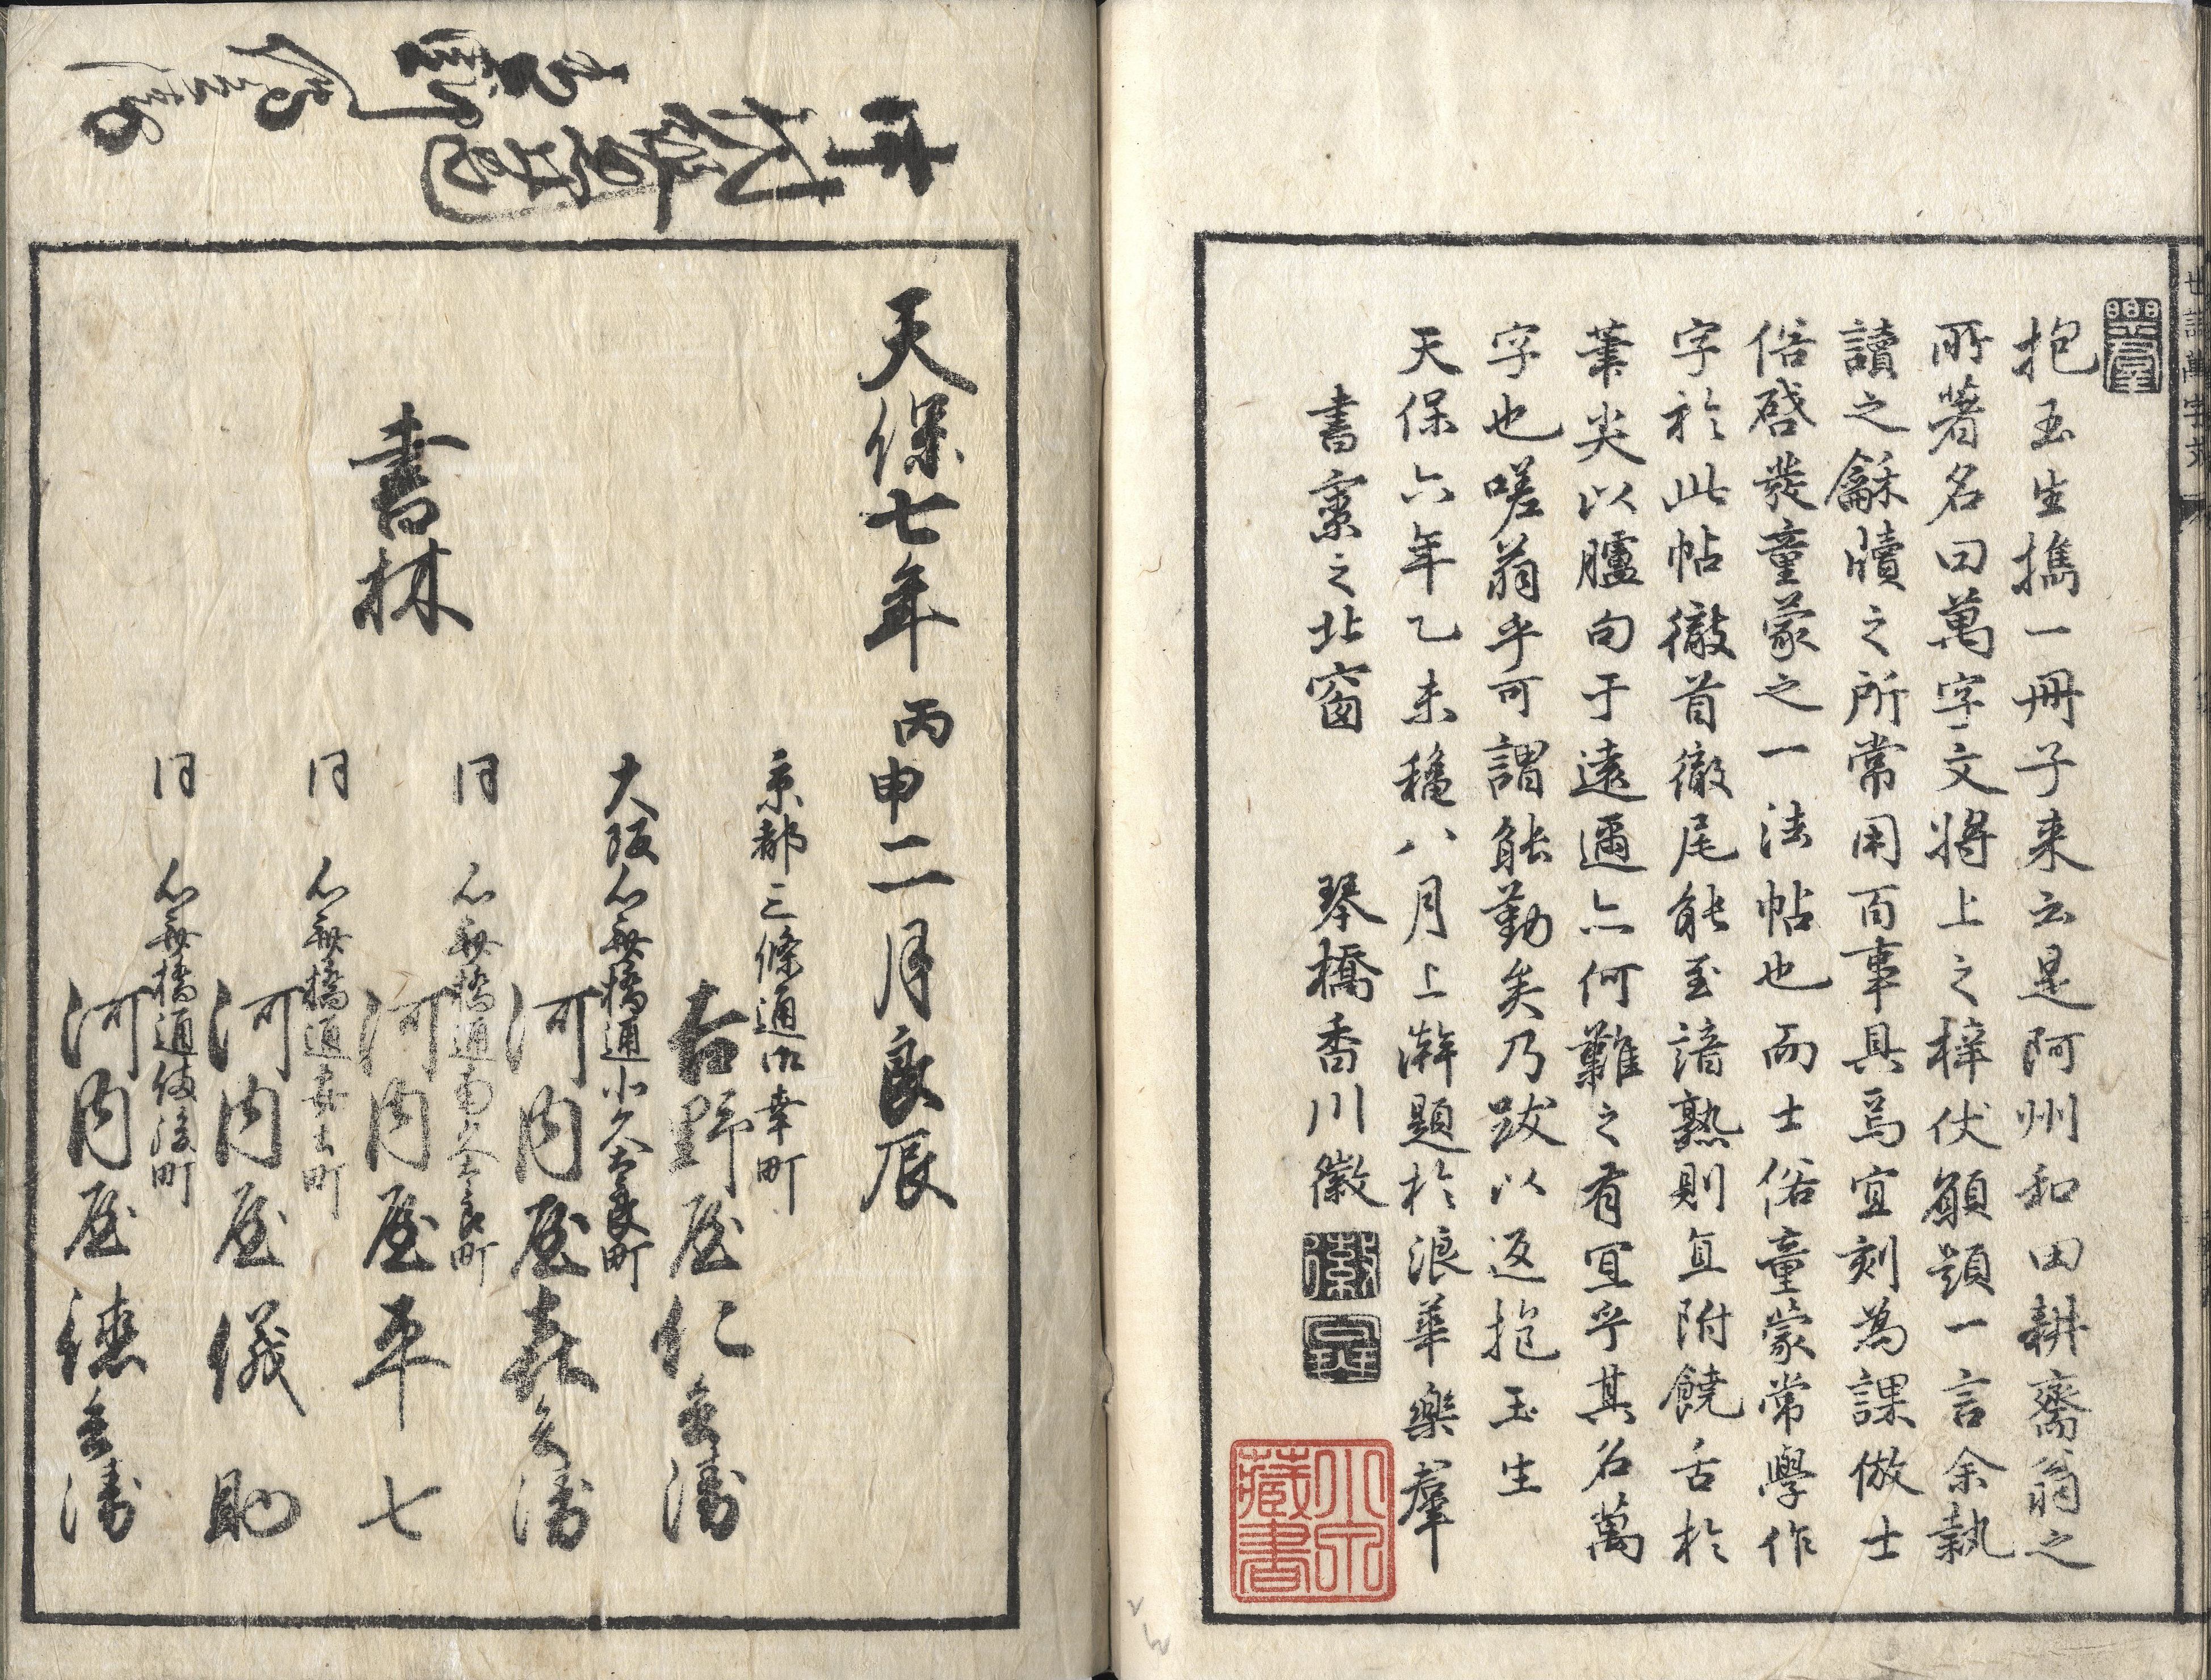 抱玉生携一冊子来云是阿州和田耕齋翁之
所著名曰萬字文將上之梓伏願題一言余執
讀之龢牘之所常用百事具焉宜刻為課倣士
俗啓發童蒙之一法帖也而士俗童蒙常學作
字於此帖徹首徹尾能至諳熟則直附饒舌於
筆尖以臚句于遠邇亦何難之有宜乎其名萬
字也嗟翁乎可謂能勤矣乃跋以返抱玉生
天保六年乙未穐八月上澣題於浪華樂羣
書寮之北窗
琴橋香川徽
天保七年丙申二月良辰
書林
京都三條通御幸町
吉野屋仁兵衞
大阪心斎橋通北久太良町
河内屋喜兵衞
同 心斎橋通南久太良町
河内屋平七
同 心斎橋通安土町
河内屋儀助
同 心斎橋通備後町
河内屋徳兵衞
藏書